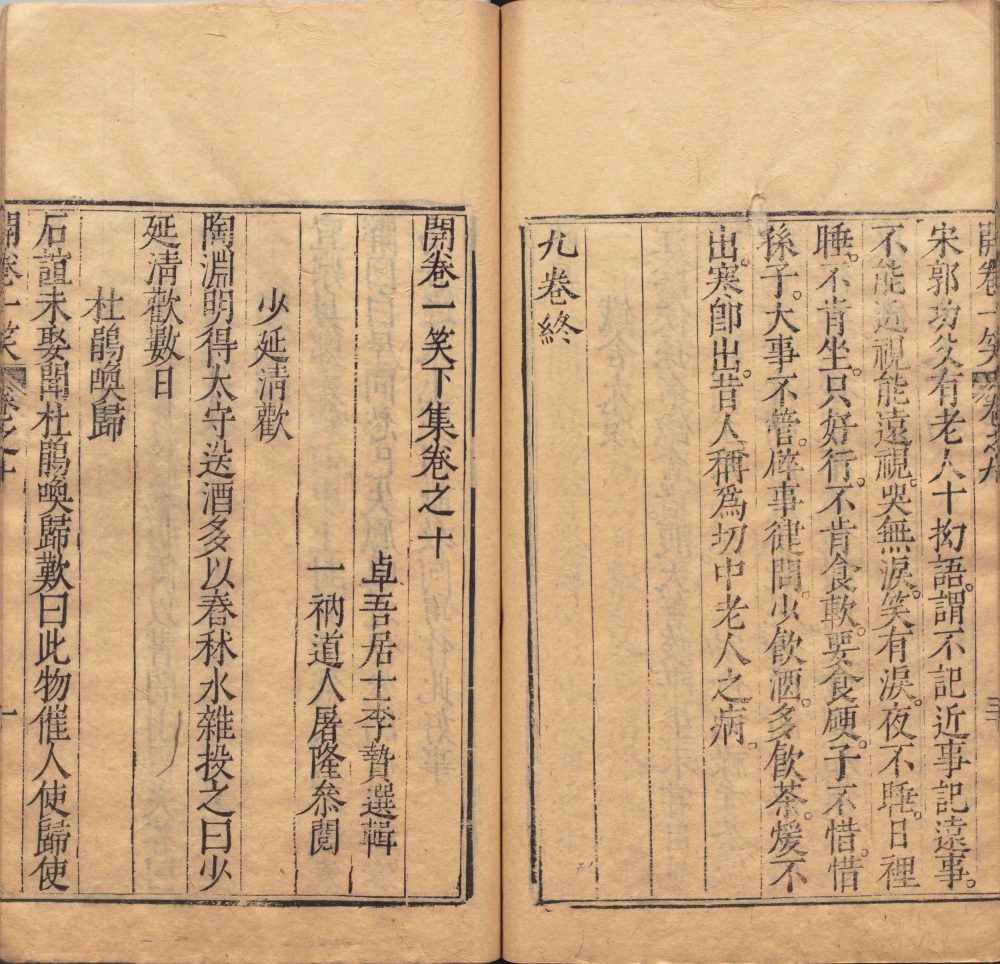 開卷一笑 卷之九
宋郭功父有老人十拗語。謂不記近事記遠事。
不能近視能遠視。哭無淚。笑有淚。夜不睡。日裡
睡。不肯坐。只好行。不肯食軟。要食硬。子不惜。惜
孫子。大事不管。碎事律問。少飲酒。多飲茶。煖不
出。寒卽出。昔人稱爲切中老人之病。
九卷終
開卷一笑下集卷之十
卓吾居士李贄選輯
一衲道人屠隆叅閱
少延清歡
陶淵明得太守送酒多以春秫水雜投之曰少
延淸歡數日
杜鵑喚歸
石誼未娶聞杜鵑喚歸歎曰此物催人使歸使
開卷一笑 卷之十 一